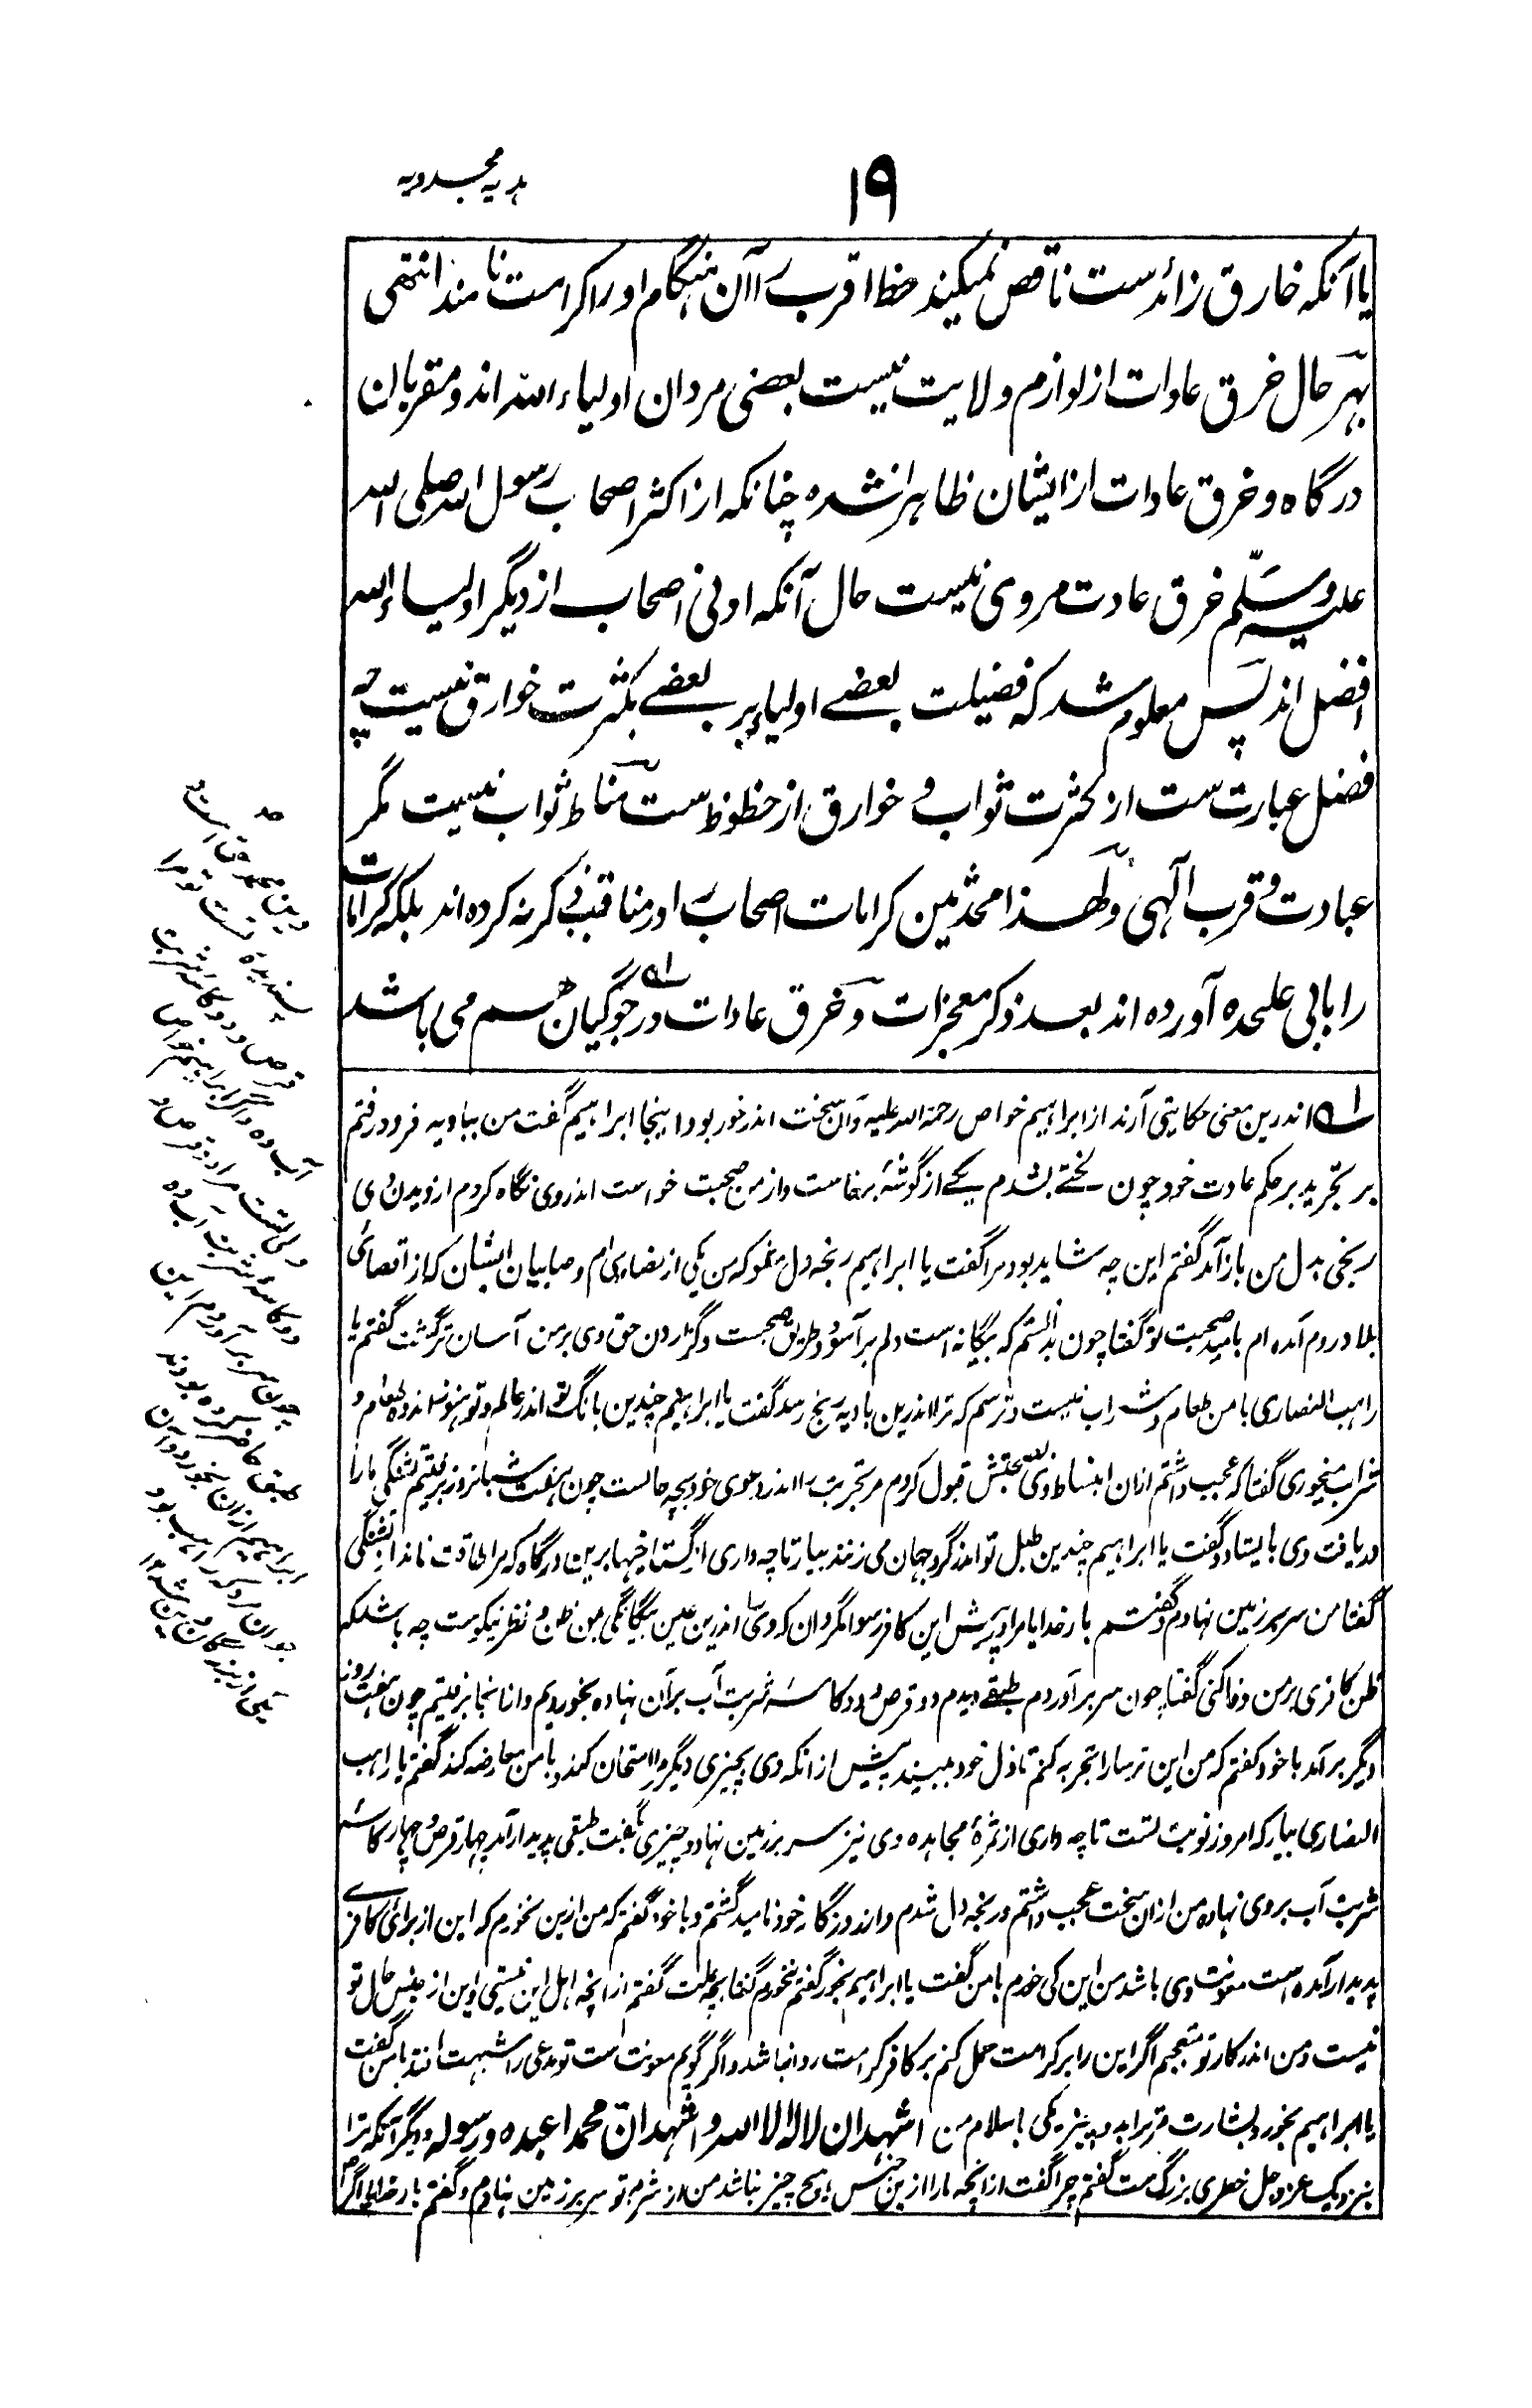 ۱۹
ہدیہ مجددیہ
یا آنکه خارق زائدست ناقص نمیکند حظ اقرب را آن هنگام او را کرامت نامند انتهی
بهرحال خرق عادات از لوازم ولایت نیست بعضی مردان اولیاء الله اند و مقربان
درگاه و خرق عادات ازایشان ظاهر نشده چنانکه از اکثر اصحاب رسول الله صلی الله
علیه وسلّم خرق عادت مروی نیست حال آنکه ادنی اصحاب از دیگر اولیاء الله
افضل اند پس معلوم شد که فضیلت بعضے اولیاء بر بعضے بکثرت خوارق نیست چه
فضل عبارت ست از کثرت ثواب و خوارق از حظوظ ست مناط ثواب نیست مگر
عبادت و قرب الٰهی ولهٰذا محدثین کرامات اصحاب را در مناقب ذکر نه کرده اند بلکه کرامات
را بابی علٰحده آورده اند بعد ذکر معجزات و خرق عادات در جوگیان هم می باشد
اندرین معنی حکایتی آرند از ابراهیم خواص رحمة الله علیه و آن سخت اندر خور بود اینجا ابراهیم گفت من بباویه فرو رفتم
بر تجرید بر حکم عادت خود چون لختے بشدم یکے از گوشهٔ برخاست و از من صحبت خواست اندر وی نگاه کردم از دیدن وی
رنجی بدل من باز آمد گفتم این چه شاید بود مرا گفت یا ابراهیم رنجه دل مشو که من یکی از نصاری ام و صابیان ایشان که از اقصائی
بلاد روم آمده ام بامید صحبت تو گفتا چون بدانستم که بیگانه است دلم برآسود و طریق صحبت و گزاردن حق وی بر من آسان تر گشت گفتم یا
راهب النصاری با من طعام و شراب نیست و ترسم که ترا اندرین بادیه رنج رسد گفت یا ابراهیم چندین بانگ تو اندر عالم و تو هنوز اندوه طعام و
شراب میخوری گفتا که عجب داشتم ازان انبساط وی صحبتش قبول کردم مر تجربت را اندر دعوی خود بچه حالست چون هفت شبانروز برفتیم تشنگی ما را
دریافت وی بایستاد و گفت یا ابراهیم چندین طبل تو اندر گرد جهان می زنند بیار تا چه داری از گستاخیها برین درگاه که مرا طاقت نماند از تشنگی
گفتا من سر بر زمین نهادم و گفتم بار خدایا مرا پیش این کافر رسوا مگردان که وی اندرین عین بیگانگی بمن ظن و نظر نیکوست چه باشد که
ظن کافری بر من وفا کنی گفتا چون سر برآوردم طبقے دیدم دو قرص و دو کاسهٔ شربت آب بر آن نهاده بخوردیم و از انجا برفتیم چون هفت روز
دیگر برآمد با خود گفتم که من این ترسا را تجربه کنم تا ذل خود ببیند پیش از انکه وی بچیزی دیگر مرا امتحان کند و با من معارضه کند گفتم یا راهب
النصاری بیار که امروز نوبت تست تا چه داری از ثمرهٔ مجاهده وی نیز سر بر زمین نهاد و چیزی بگفت طبقی پدیدار آمد چهار قرص و چهار کاسهٔ
شربت آب بر وی نهاده من ازان سخت عجب داشتم و رنجه دل شدم و از روزگار خود نامید گشتم و با خود گفتم که من ازین نخورم که این از برای کافرے
پدیدار آمده است معونت وی باشد من این کی خورم با من گفت یا ابراهیم بخور گفتم نخورم گفتا بچه علت گفتم از انچه اهل این نیستی و این از جنس حال تو
نیست و من اندر کار تو متعجبم اگر این را بر کرامت حمل کنم بر کافر کرامت روا نباشد و اگر گویم معونت ست تو مدعی را شبهت افتد با من گفت
یا ابراهیم بخور و بشارت مر ترا بدو چیز یکی باسلام من اشهد ان لا اله الا الله و اشهد ان محمدا عبده و رسوله و دیگر آنکه ترا
بنزدیک عز و جل خطری بزرگ ست گفتم چرا گفت از انچه ما را ازین جنس هیچ چیز نباشد من از شرم تو سر بر زمین نهادم و گفتم بار خدایا اگر
دین محمد حق است و
پسندیده تست تو مرا
قرص و دو کاسه شربت
آب ده و اگر ابراهیم خواص
ولی تست مرا دو قرص و
دو کاسه شربت آب ده
چون سر برآوردم این
طبق حاضر کرده بودند
ابراهیم ازان بخورد و آن
جوان مرد که راهب بود
یکی از بزرگان دین شد